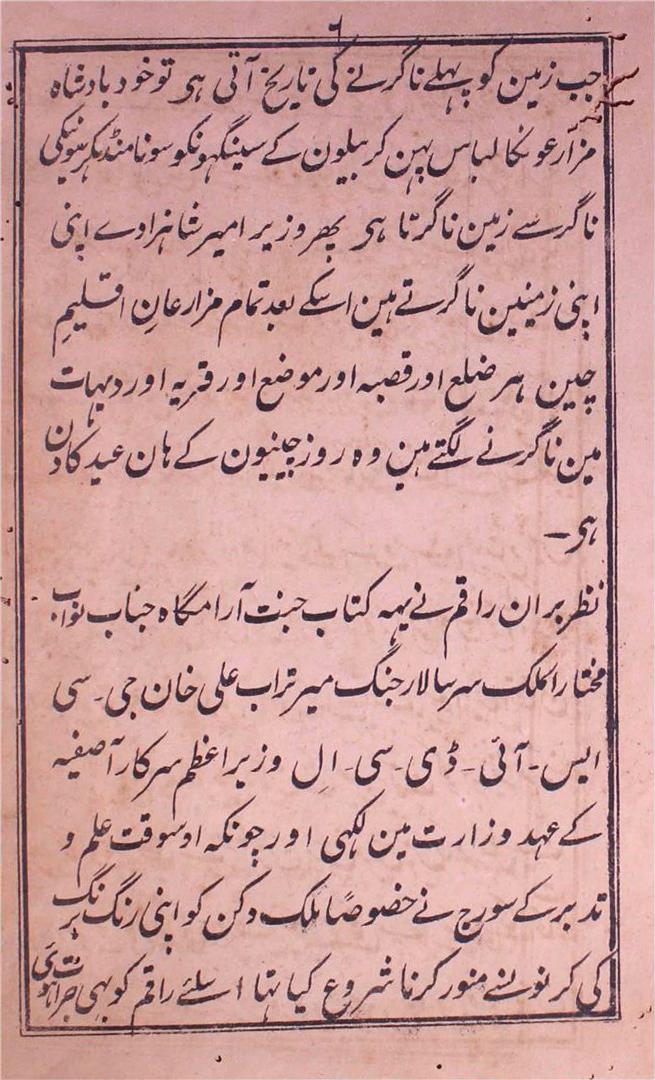 ۶
جب زمین کو پہلے ناگرنے کی تاریخ آتی ہی تو خود بادشاہ
مزارعونکا لباس پہن کر بیلون کے سینگھونکو سونا منڈہکر سونیکی
ناگر سے زمین ناگرتا ہی پھر وزیر امیر شاہزادے اپنی
اپنی زمینین ناگرتے ہین اسکے بعد تمام مزارعانِ اقلیمِ
چین ہر ضلع اور قصبہ اور موضع اور قریہ اور دیہات
مین ناگرنے لگتے ہین وہ روز چینیون کے ہان عید کا دن
ہی۔
نظر بران راقم نے یہہ کتاب جنت آرامگاہ جناب نواب
مختار الملک سر سالار جنگ میر تراب علی خان جی۔ سی
ایس۔ آئی۔ ڈی۔ سی۔ ال وزیر اعظم سرکار آصفیہ
کے عہد وزارت مین لکہی اور چونکہ اوسوقت علم و
تدبر کے سورج نے خصوصًا ملک دکن کو اپنی رنگ برنگ
کی کرنونسے منور کرنا شروع کیا تہا اسلئے راقم کو بہی جرات ہوئی